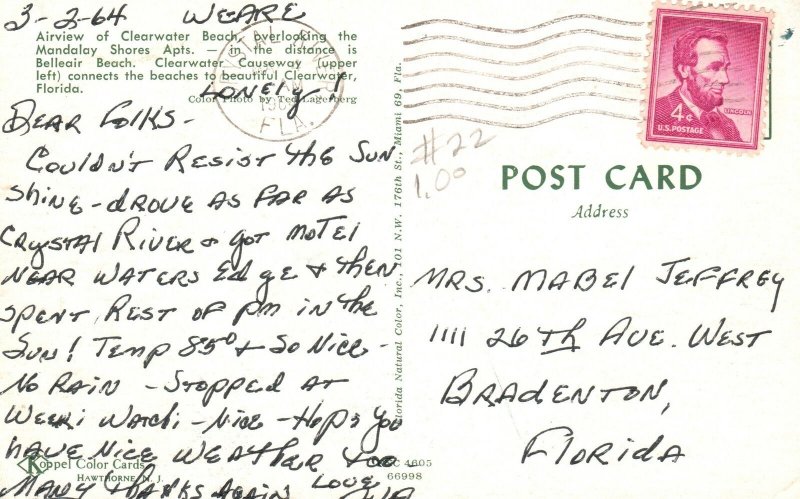 3-2-64 WE ARE
Airview of Clearwater Beach, overlooking the
Mandalay Shores Apts. — in the distance is
Belleair Beach. Clearwater Causeway (upper
left) connects the beaches to beautiful Clearwater,
Florida.
LONELY!
Color Photo by Ted Lagerberg
FLA.
DEAR FOLKS -
COULDN'T RESIST the SUN
Shine - drove AS FAR AS
CRYSTAL RIVER & GOT MOTEL
NEAR WATERS Edge & then
SPENT REST OF PM IN the
SUN! TEMP 85° & SO NICE -
NO RAIN - STOPPED AT
WEEKI WATCHI - NICE - HOPE YOU
HAVE NICE WEATHER TOO
MANY THANKS AGAIN LOVE
Koppel Color Cards
HAWTHORNE, N. J.
4605
66998
Florida Natural Color, Inc., 701 N.W. 176th St., Miami 69, Fla.
#22
1.00
4¢
LINCOLN
U.S. POSTAGE
POST CARD
Address
MRS. MABEL JEFFREY
1111 26th AVE. WEST
BRADENTON,
FLORIDA